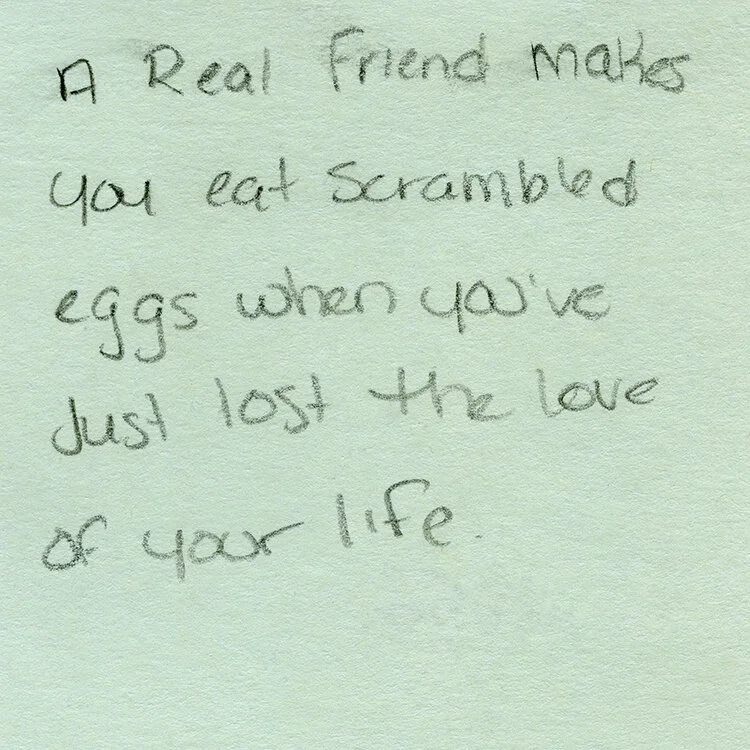 A Real Friend makes
you eat Scrambled
eggs when you've
Just lost the love
of your life.